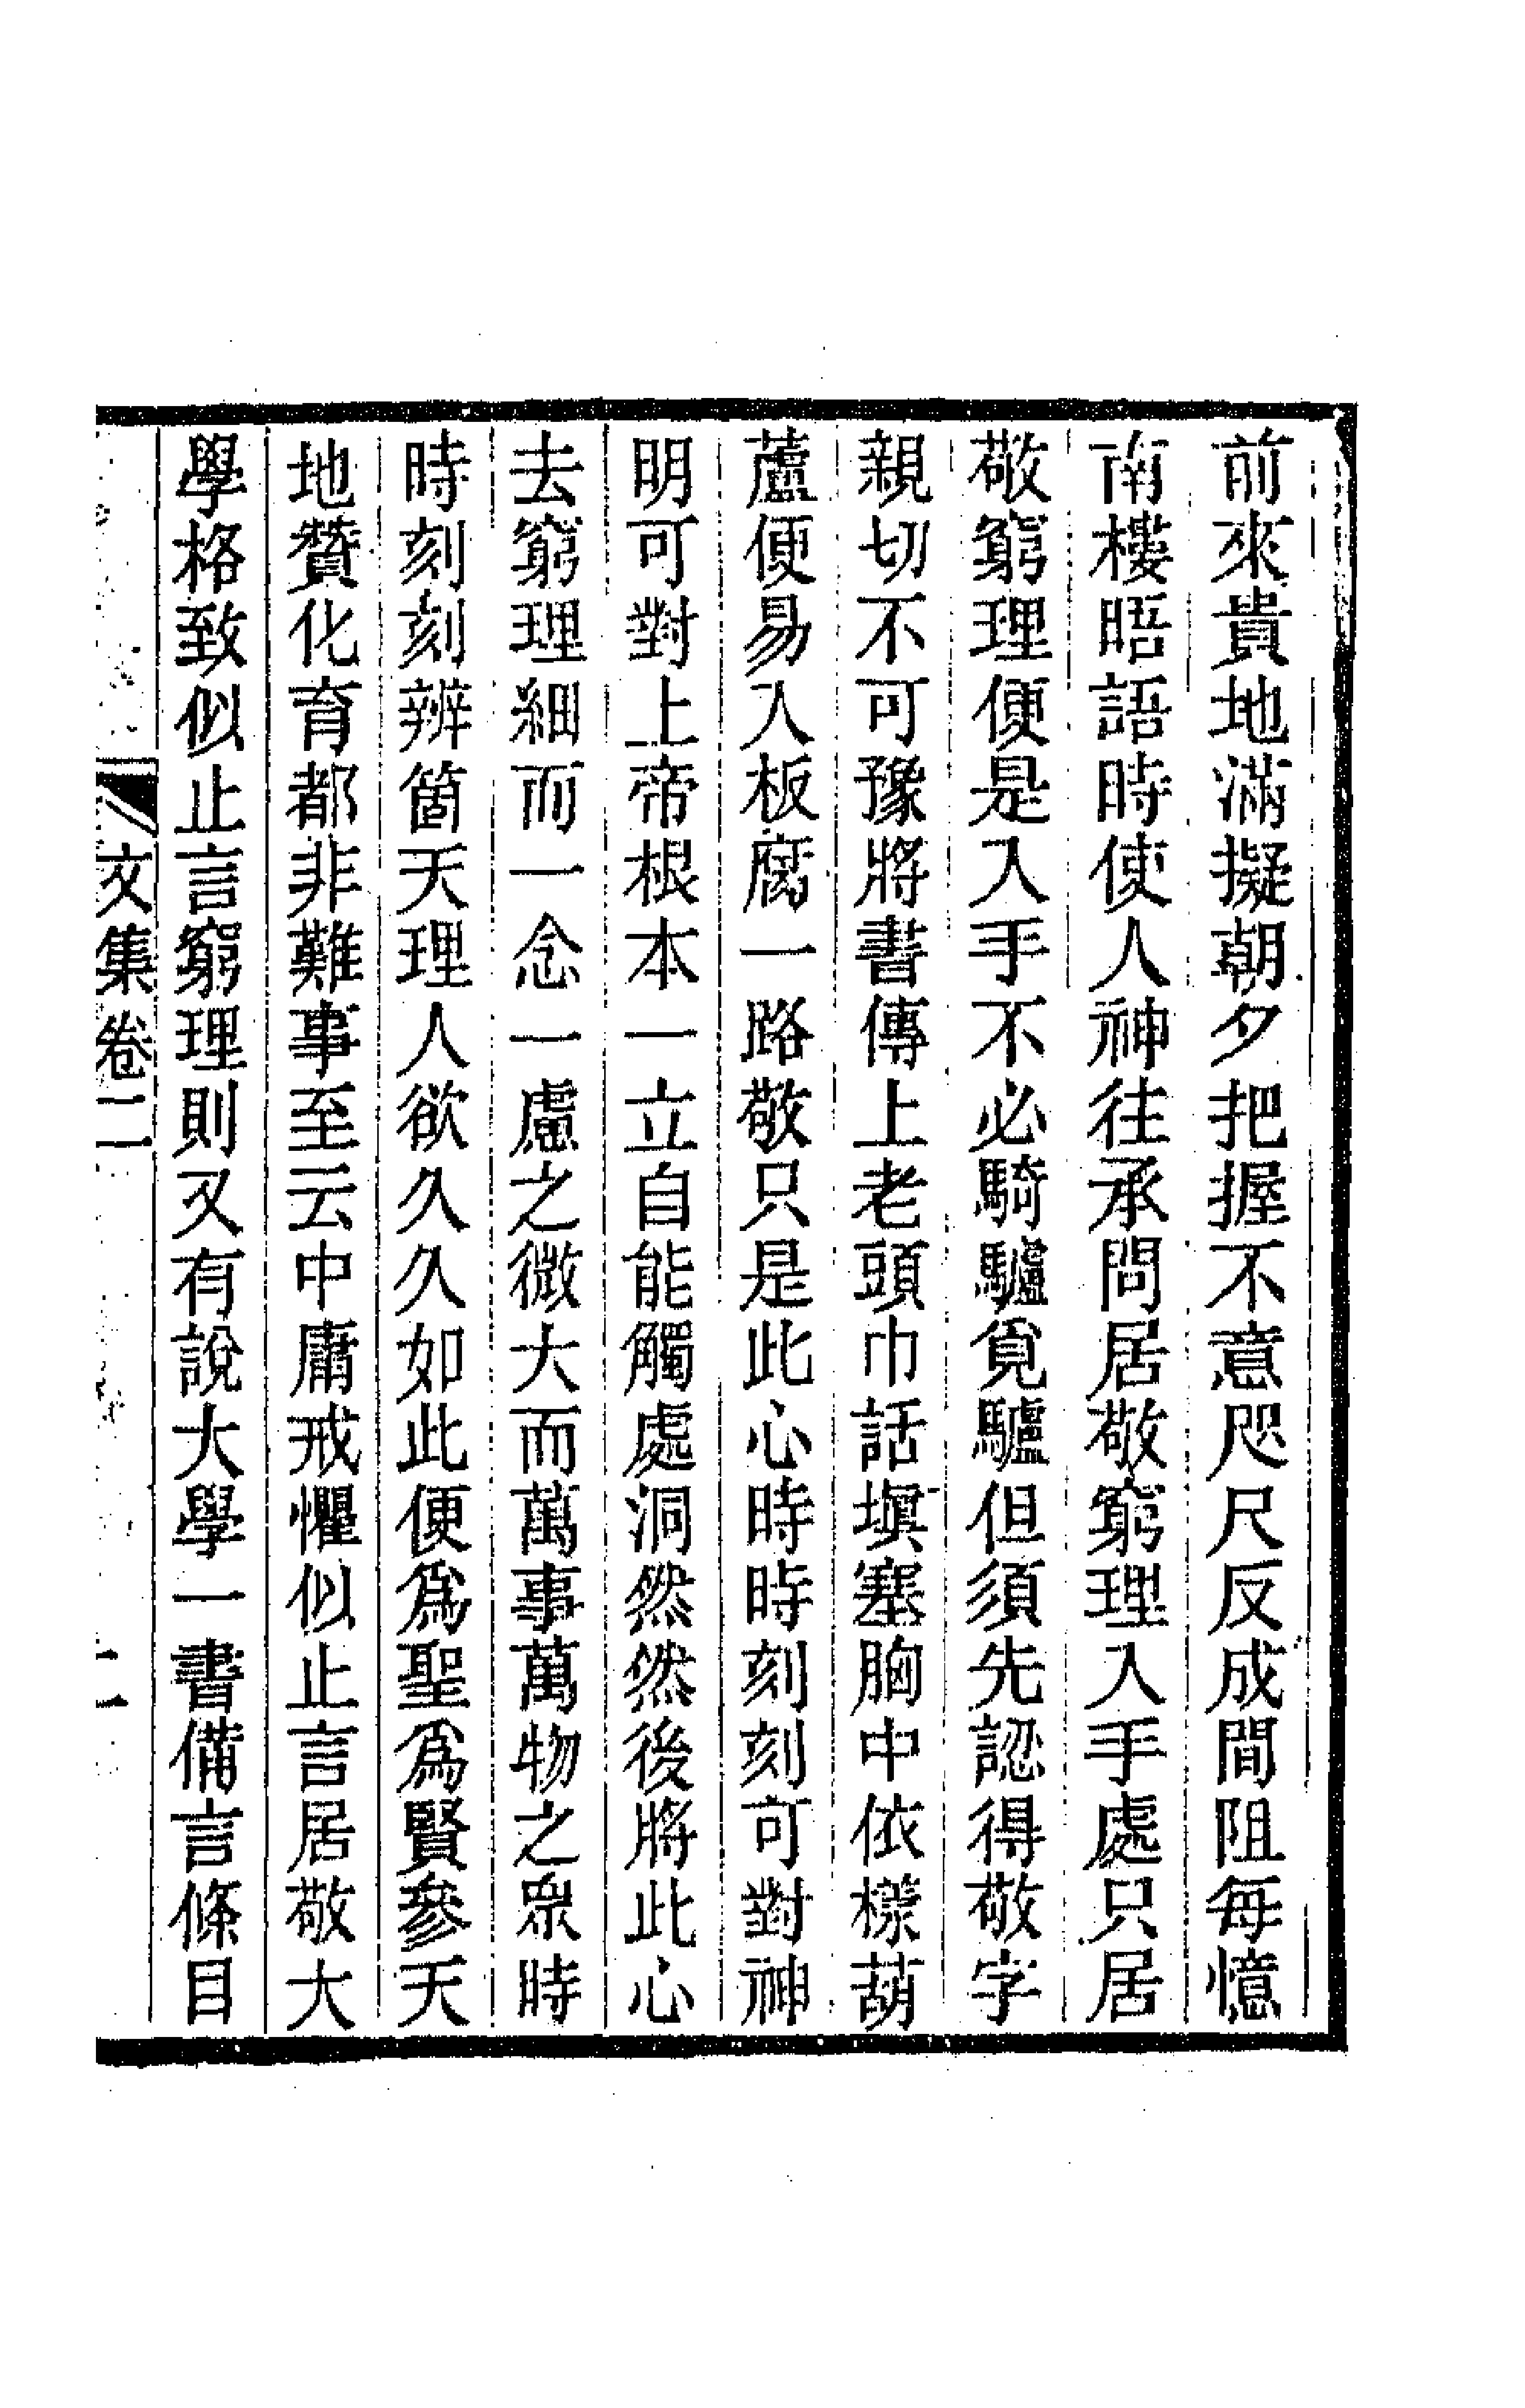 前來貴地滿擬朝夕把握不意咫尺反成間阻每憶
南樓晤語時使人神往承問居敬窮理入手處只居
敬窮理便是入手不必騎驢覓驢但須先認得敬字
親切不可豫將書傳上老頭巾話塡塞胸中依樣葫
蘆便易入板腐一路敬只是此心時時刻刻可對神
明可對上帝根本一立自能觸處洞然然後將此心
去窮理細而一念一慮之微大而萬事萬物之衆時
時刻刻辨箇天理人欲久久如此便爲聖爲賢參天
地贊化育都非難事至云中庸戒懼似止言居敬大
學格致似止言窮理則又有說大學一書備言條目
文集卷二
二